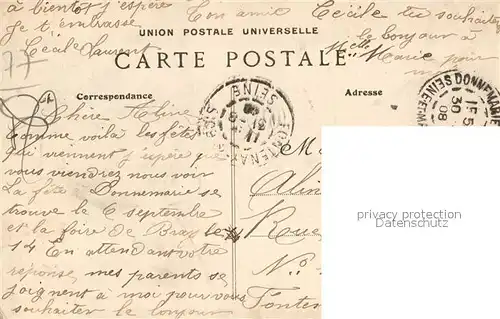 à bientôt j'espère
je t'embrasse
Cécile Laurent
Ton amie Cécile tu souhaiteras
le bonjour à
Melle Marie pour
UNION POSTALE UNIVERSELLE
CARTE POSTALE
Correspondance
Adresse
77
Chère Aline
Comme voilà les fêtes
qui viennent j'espère que
vous viendrez nous voir
La fête à Donnemarie se
trouve le 6 septembre
et la foire de Bray le
14 En attendant votre
réponse, mes parents se
joignent à moi pour vous
souhaiter le bonjour
FONTENAY
SEINE
DONNEMARIE
SEINE-ET-M
15
30
08
Rue
N.o
Fonten
privacy protection
Datenschutz